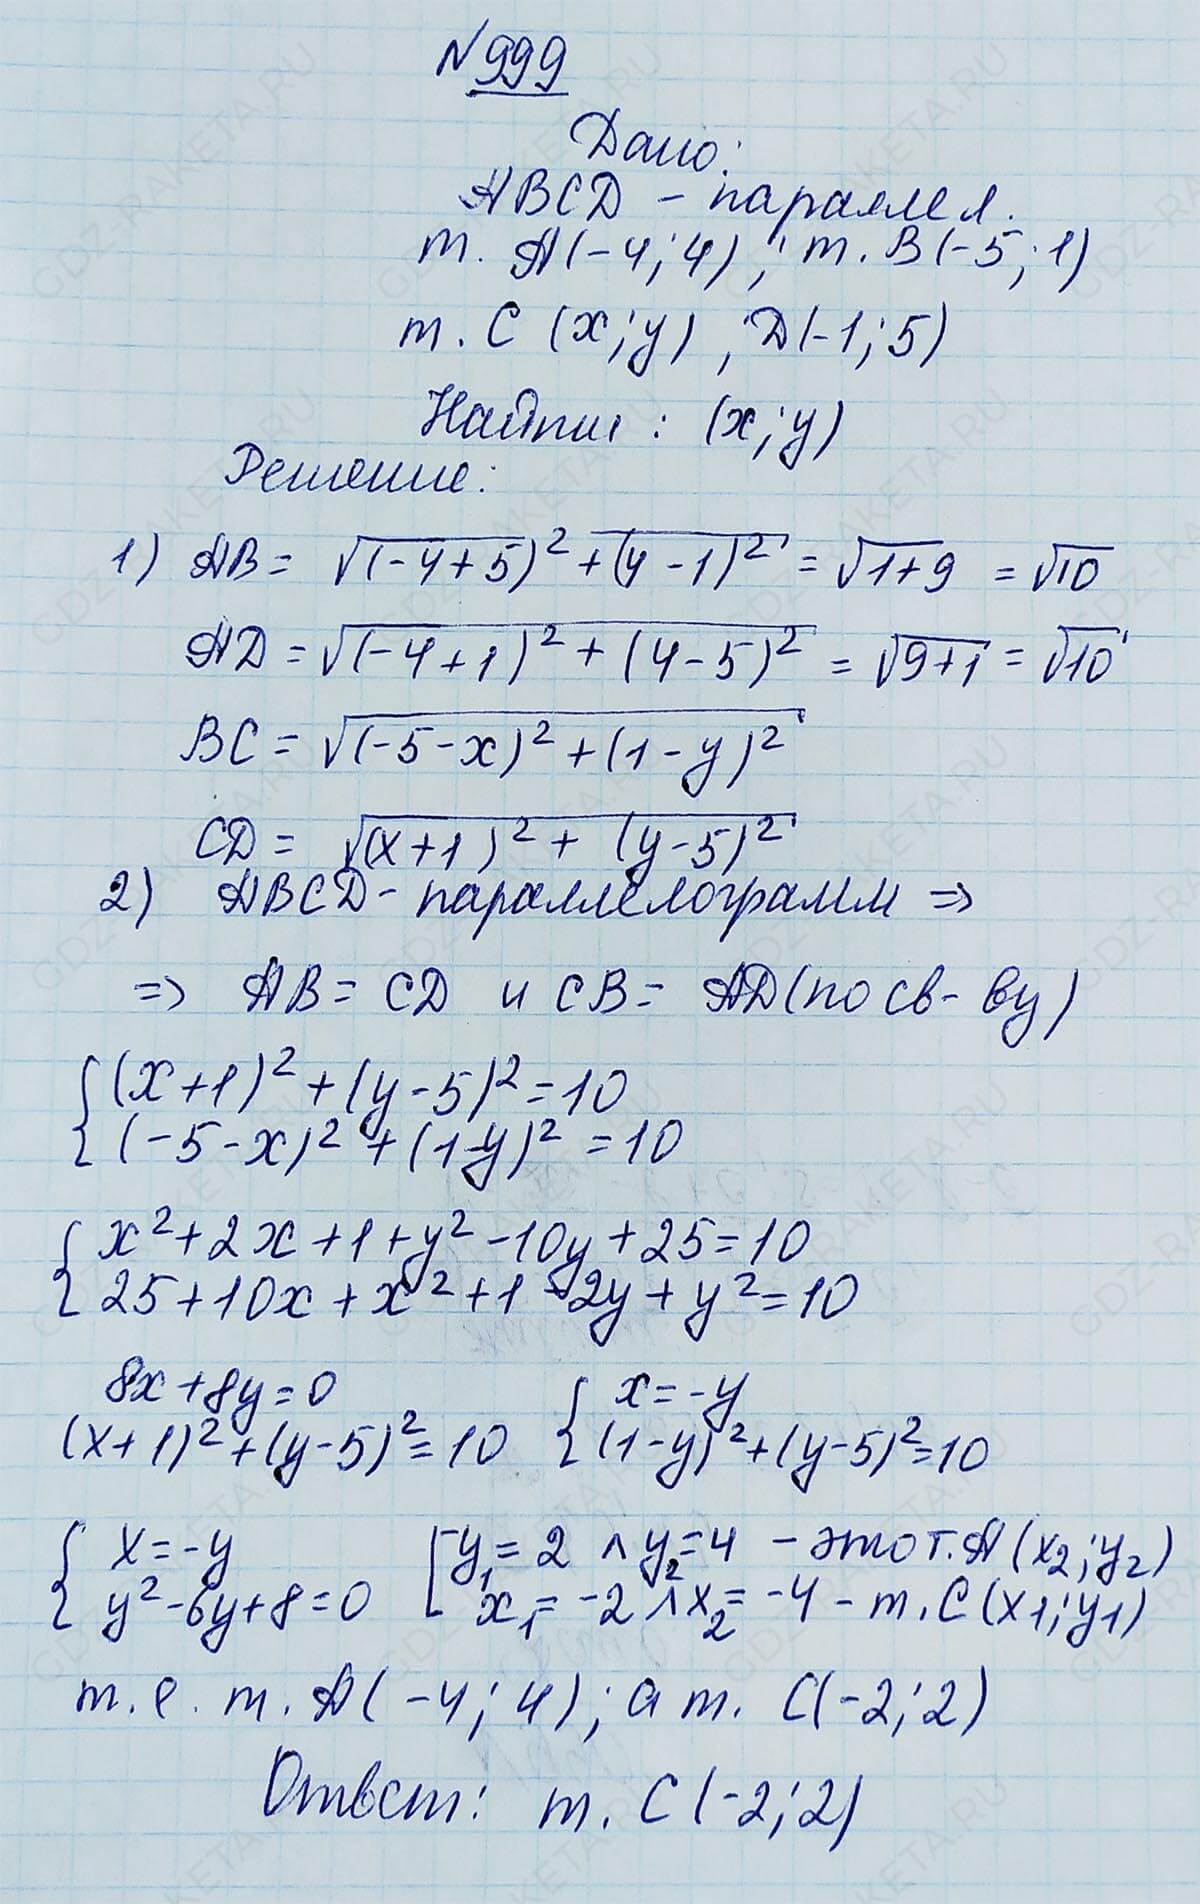 №999
Дано:
ABCD - параллел.
т. A(-4;4), т. B(-5;1)
т. C (x;y), D(-1;5)
Найти: (x;y)
Решение:
1) AB = √(-4+5)² + (4-1)² = √1+9 = √10
AD = √(-4+1)² + (4-5)² = √9+1 = √10
BC = √(-5-x)² + (1-y)²
CD = √(x+1)² + (y-5)²
2) ABCD - параллелограмм ⇒
⇒ AB = CD и CB = AD (по св-ву)
{ (x+1)² + (y-5)² = 10
(-5-x)² + (1-y)² = 10
{ x² + 2x + 1 + y² - 10y + 25 = 10
25 + 10x + x² + 1 - 2y + y² = 10
8x + 8y = 0 { x = -y
(x+1)² + (y-5)² = 10 (1-y)² + (y-5)² = 10
{ x = -y [ y₁ = 2 ∧ y₂ = 4 - это т. A (x₂;y₂)
y² - 6y + 8 = 0 x₁ = -2 ∧ x₂ = -4 - т. C (x₁;y₁)
т. е. т. A(-4;4); а т. C(-2;2)
Ответ: т. C(-2;2)
GDZ-RAKETA.RU